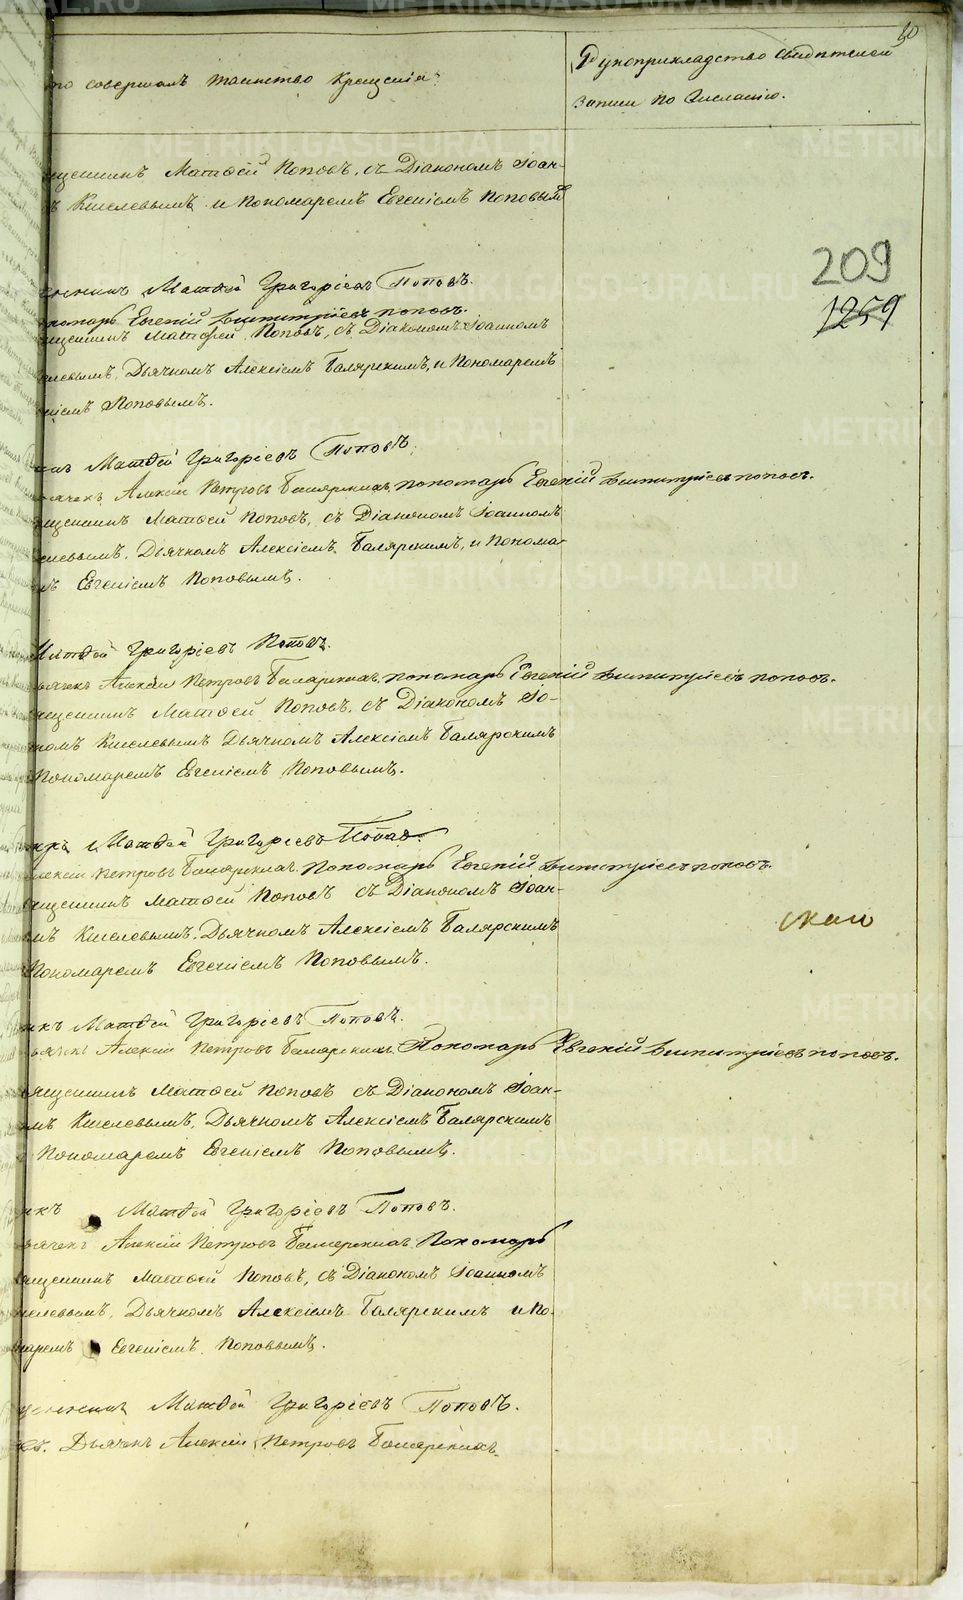 60
то совершалъ таинство Крещенія.
Рукоприкладство свидѣтелей
записи по желанію.
щенникъ Матѳей Поповъ, съ Діакономъ Іоан-
ъ Киселевымъ и Пономаремъ Евгеніемъ Поповымъ
209
1259
щенникъ Матѳей Григоріевъ Поповъ.
ономарь Евгеній Димитріевъ Поповъ.
ященникъ Матѳей Поповъ, съ Діакономъ Іоанномъ
елевымъ, Дьячкомъ Алексіемъ Балярскимъ, и Пономаремъ
ніемъ Поповымъ.
икъ Матѳей Григоріевъ Поповъ.
ьячекъ Алексій Петровъ Балярскихъ, Пономарь Евгеній Димитріевъ Поповъ.
щенникъ Матѳей Поповъ, съ Діакономъ Іоанномъ
елевымъ, Дьячкомъ Алексіемъ Балярскимъ, и Понома-
мъ Евгеніемъ Поповымъ.
Матѳей Григоріевъ Поповъ.
ьячекъ Алексій Петровъ Балярскихъ, Пономарь Евгеній Димитріевъ Поповъ.
ященникъ Матѳей Поповъ, съ Діакономъ Іо-
номъ Киселевымъ Дьячкомъ Алексіемъ Балярскимъ
Пономаремъ Евгеніемъ Поповымъ.
никъ Матѳей Григоріевъ Поповъ
Алексій Петровъ Балярскихъ Пономарь Евгеній Димитріевъ Поповъ.
ященникъ Матѳей Поповъ съ Діакономъ Іоан-
омъ Киселевымъ, Дьячкомъ Алексіемъ Балярскимъ
Пономаремъ Евгеніемъ Поповымъ.
икъ Матѳей Григоріевъ Поповъ.
ьячекъ Алексій Петровъ Балярскихъ Пономарь Евгеній Димитріевъ Поповъ.
ященникъ Матѳей Поповъ съ Діакономъ Іоан-
омъ Киселевымъ, Дьячкомъ Алексіемъ Балярскимъ
Пономаремъ Евгеніемъ Поповымъ.
икъ Матѳей Григоріевъ Поповъ.
ьячекъ Алексій Петровъ Балярскихъ Пономарь
ященникъ Матѳей Поповъ, съ Діакономъ Іоанномъ
иселевымъ, Дьячкомъ Алексіемъ Балярскимъ и По-
маремъ Евгеніемъ Поповымъ.
щенникъ Матѳей Григоріевъ Поповъ.
Дьячекъ Алексій Петровъ Балярскихъ